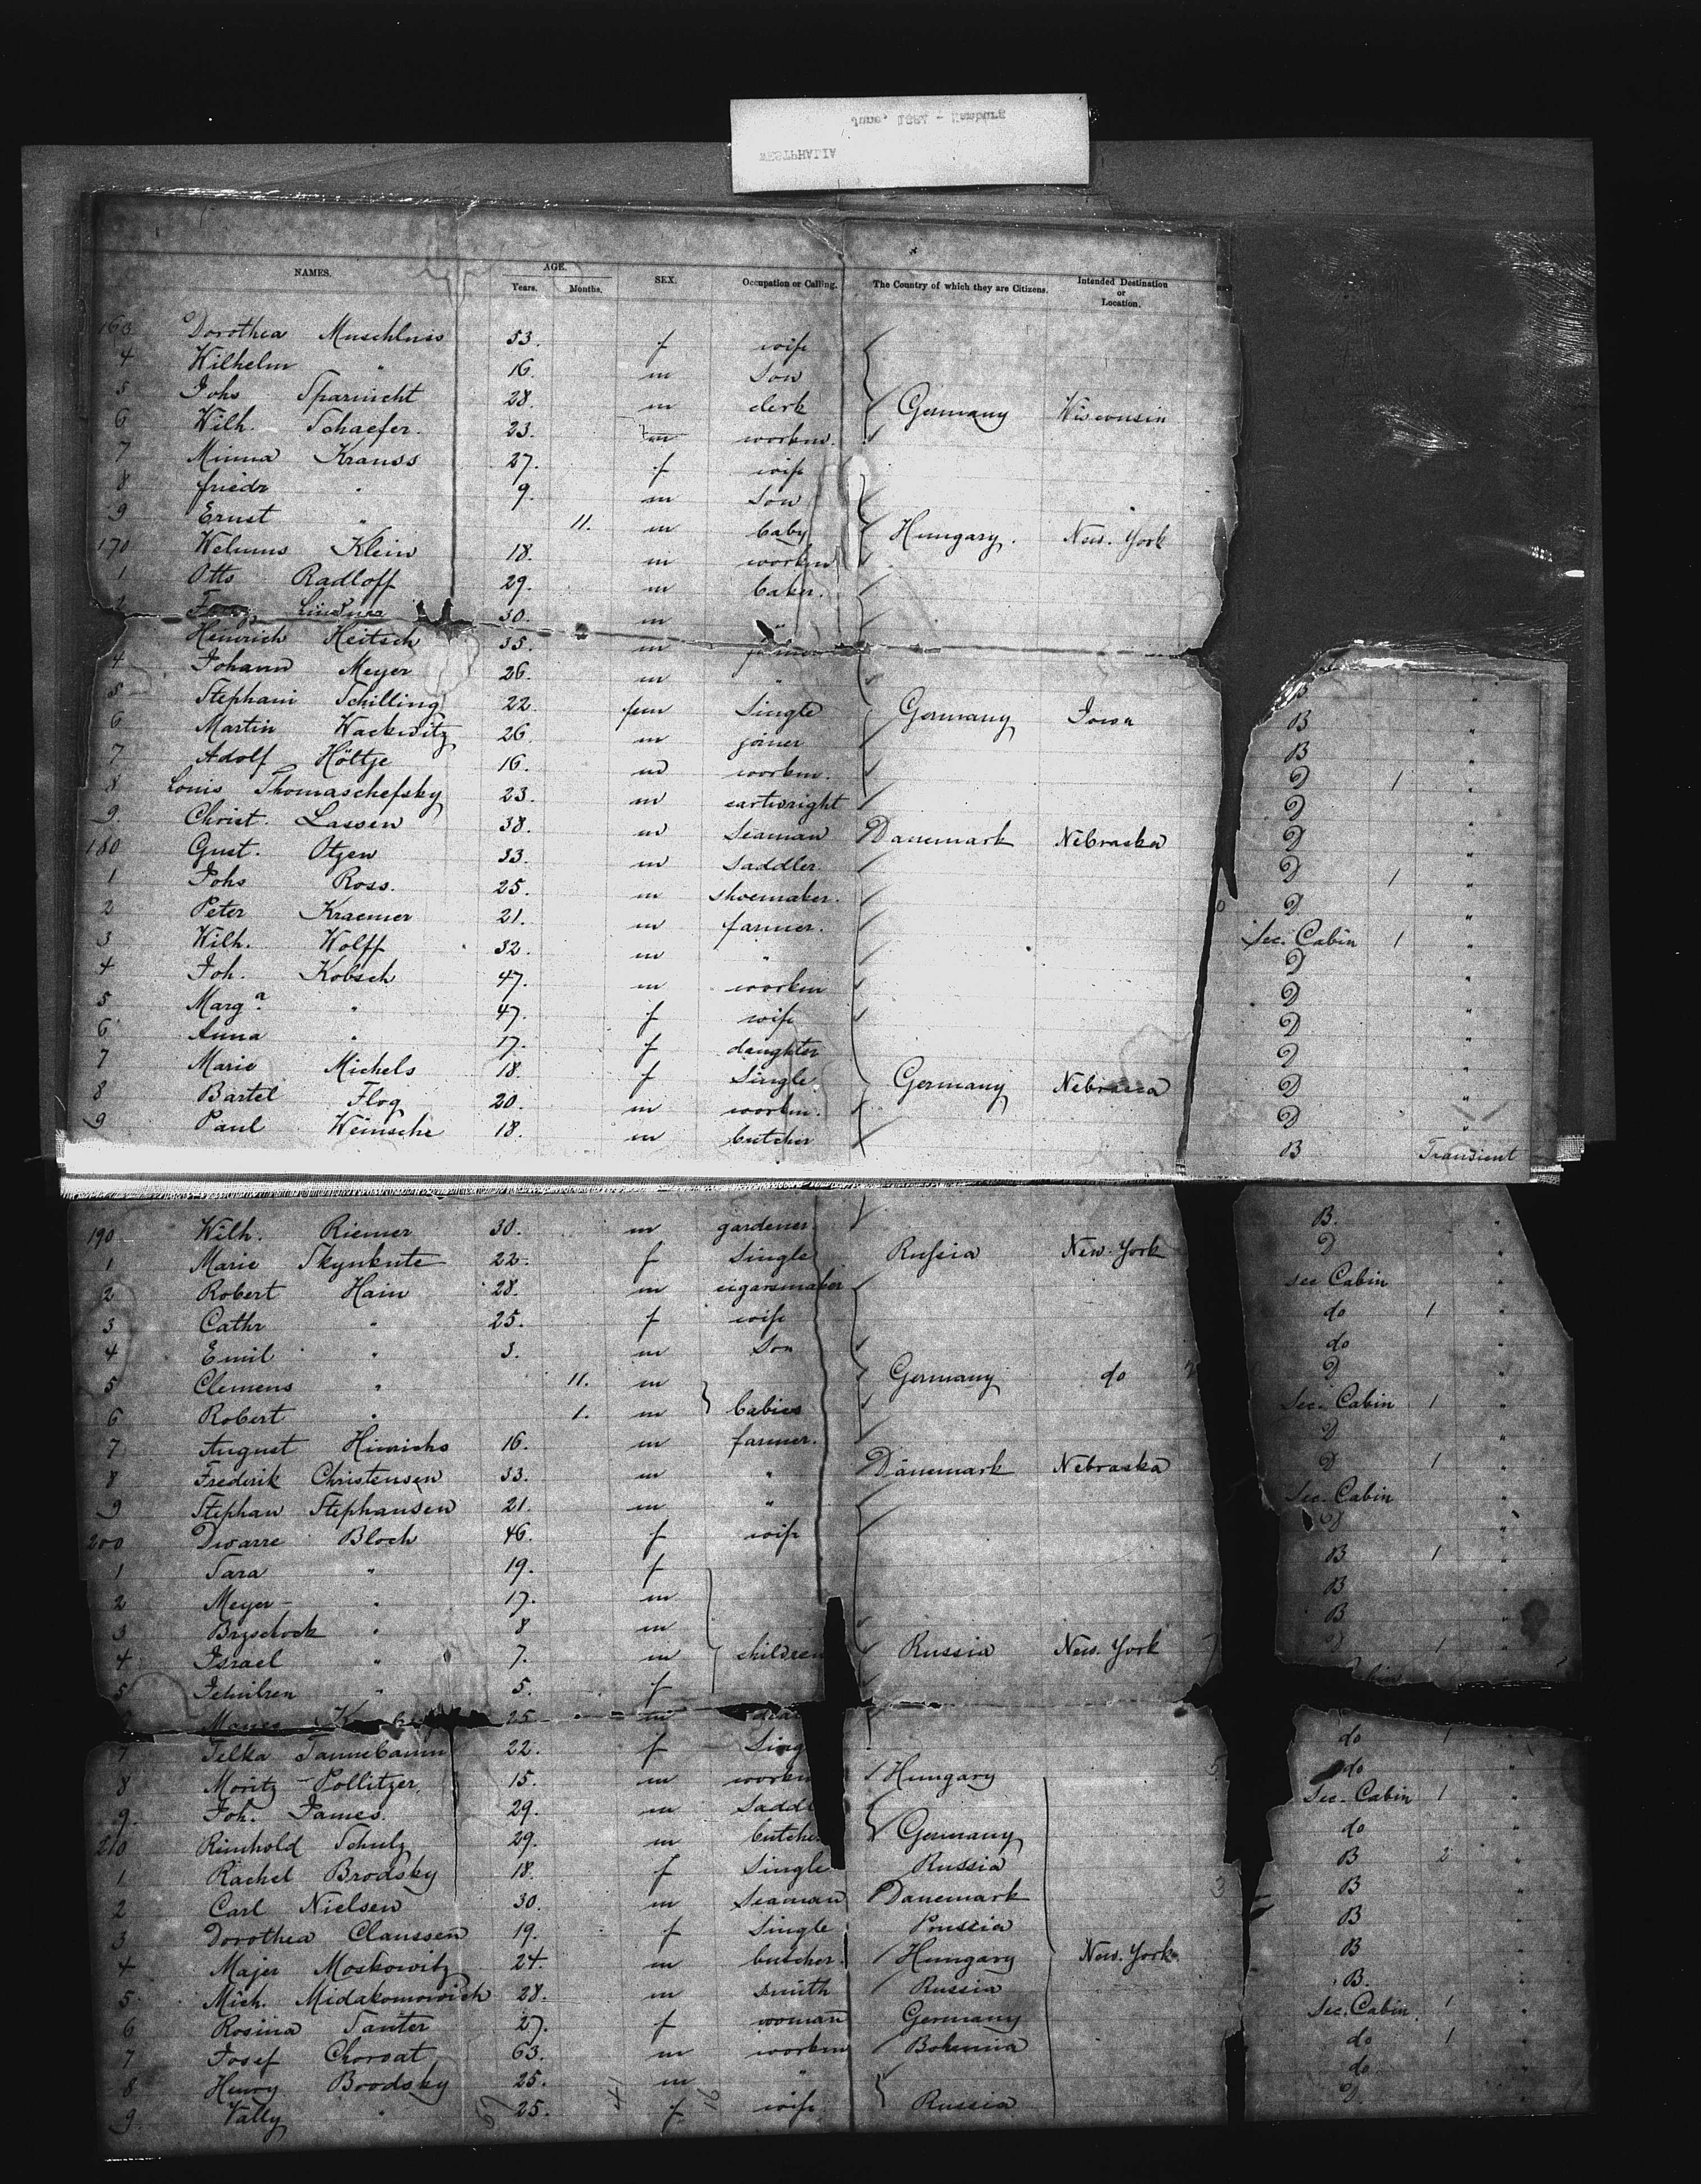 June, 1887 - Hamburg
WESTPHALIA
NAMES. AGE. Years. Months. SEX. Occupation or Calling. The Country of which they are Citizens. Intended Destination or Location.
163 Dorothea 53. f wife
4 Wilhelm " 16. m Son
5 Johs 28. m clerk Germany Wisconsin
6 Wilh. Schaefer. 23. m workm.
7 Minna Krauss 27. f wife
8 friedr " 9. m Son
9 Ernst " 11. m baby Hungary. New. York
170 Klein 18. m workm
1 Otto Radloff 29. m baker.
2 30. m "
Heinrich Heitsch 35. m
4 Johann Meyer 26. m " B "
5 Stephani Schilling 22. fem Single Germany Iowa B "
6 Martin Wackwitz 26. m joiner B "
7 Adolf Höltje 16. m workm. D 1 "
8 Louis Thomaschefsky 23. m cartwright D "
9. Christ. Lassen 38. m Seaman Danemark Nebraska D "
180 Gust. Otzen 33. m Saddler D 1 "
1 Johs Ross. 25. m shoemaker. D "
2 Peter Kraemer 21. m farmer. Sec. Cabin 1 "
3 Wilh. Wolff 32. m " D "
4 Joh. Kobsch 47. m workm D "
5 Marga. " 47. f wife D "
6 Anna " 17. f daughter D "
7 Marie Michels 18. f Single. Germany Nebraska D "
8 Bartel Flog 20. m workm. D "
9 Paul Weinsche 18. m butcher B Transient
190 Wilh. Riemer 30. m gardener. B. "
1 Marie Skynkute 22. f Single Russia New. York D "
2 Robert Hain 28. m cigarsmaker sec Cabin "
3 Cathr " 25. f wife do 1 "
4 Emil " 3. m Son do "
5 Clemens " 11. m Germany do D "
6 Robert " 1. m babies Sec. Cabin 1 "
7 August Hinrichs 16. m farmer. D "
8 Frederik Christensen 33. m " Danemark Nebraska D 1 "
9 Stephan Stephansen 21. m " Sec. Cabin "
200 Dwarre Bloch 46. f wife D "
1 Sara " 19. f B 1 "
2 Meyer " 17. m B "
3 " 8 m B "
4 Israel " 7. m children Russia New. York D 1 "
5 " 5. f
25 m
7 Selka Tannebaum 22. f do 1 "
8 Moritz Pollitzer 15. m Hungary do "
9. Joh. James. 29. m Sec. Cabin 1 "
210 Reinhold Schulz 29. m Germany do "
1 Rachel Brodsky 18. f Single Russia B 2 "
2 Carl Nielsen 30. m Seaman Danemark B "
3 Dorothea Claussen 19. f Single B "
4 Majer Moskowitz 24. m butcher. Hungary New. York B "
5. Mich. Midakomowich 28. m smith Russia B. "
6 Rosina Santer 27. f woman Germany Sec. Cabin 1 "
7 Josef Chorvat 63. m workm Bohemia do 1 "
8 Henry Brodsky 25. m " do "
9. Vally " 25. f wife Russia D "